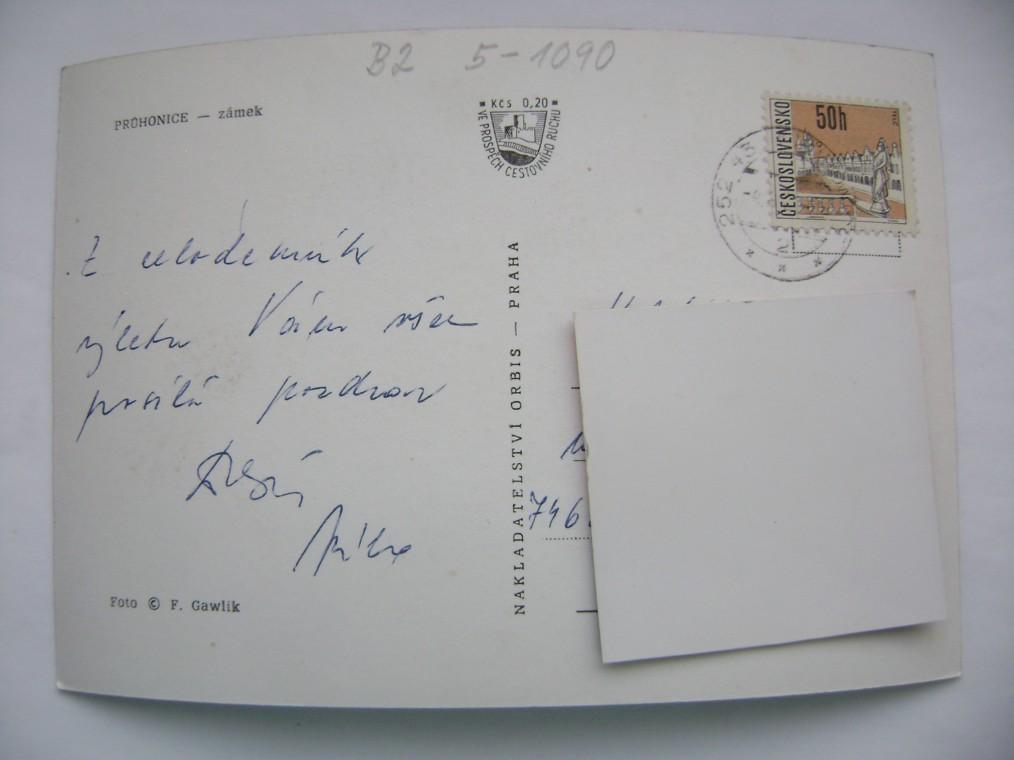 B2 5-1090
PRŮHONICE — zámek
Kčs 0,20
VE PROSPĚCH CESTOVNÍHO RUCHU
ČESKOSLOVENSKO
50h
252 43
2
Z
výletu Vám
posílá pozdrav
NAKLADATELSTVÍ ORBIS — PRAHA
746
Foto © F. Gawlik